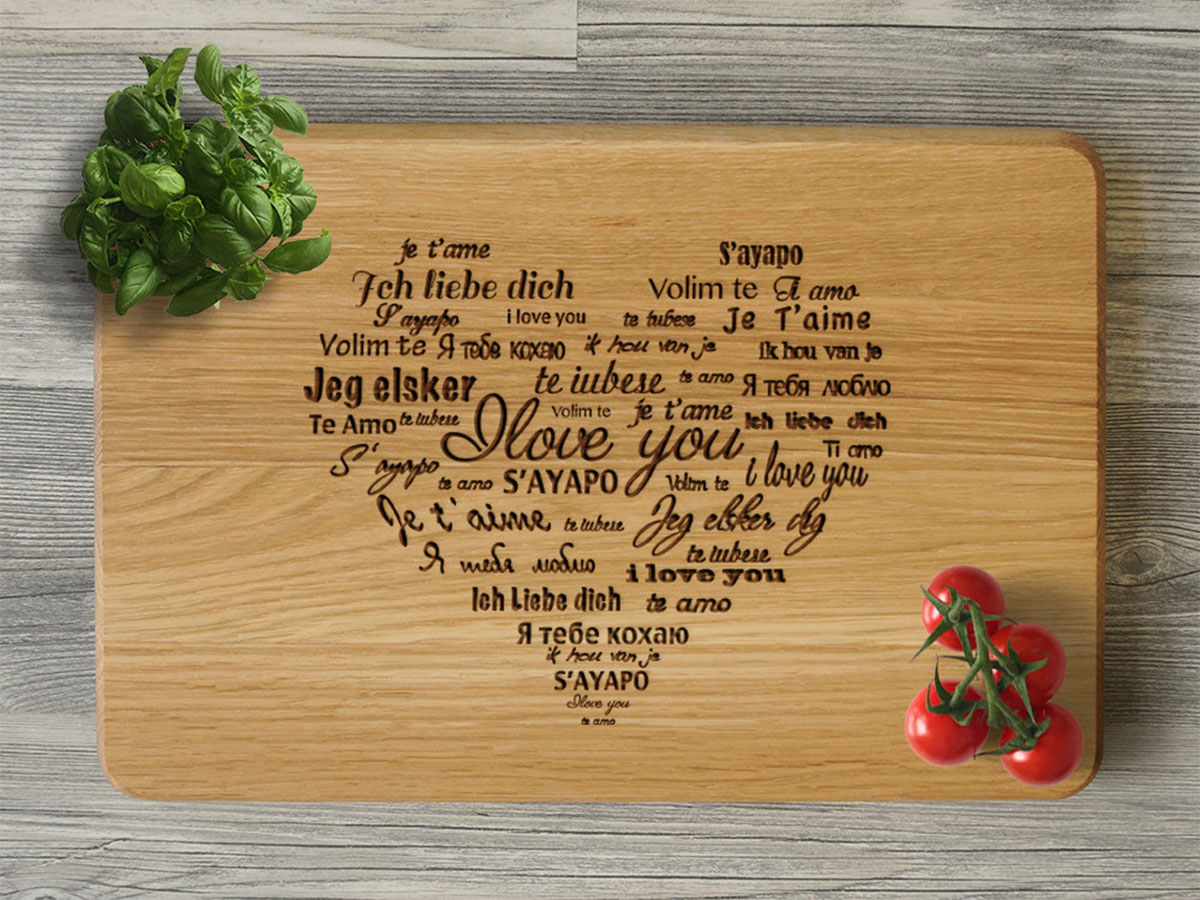 je t'ame S'ayapo
Ich liebe dich Volim te Ti amo
S'ayapo i love you te iubese Je T'aime
Volim te Я тебе кохаю ik hou van je ik hou van je
Jeg elsker te iubese te amo Я тебя люблю
Te Amo te iubese Volim te je t'ame Ich liebe dich
I love you Ti amo
S'ayapo te amo S'AYAPO Volim te i love you
Je t'aime te iubese Jeg elsker dig
Я тебя люблю te iubese
i love you
Ich Liebe dich te amo
Я тебе кохаю
ik hou van je
S'AYAPO
I love you
te amo